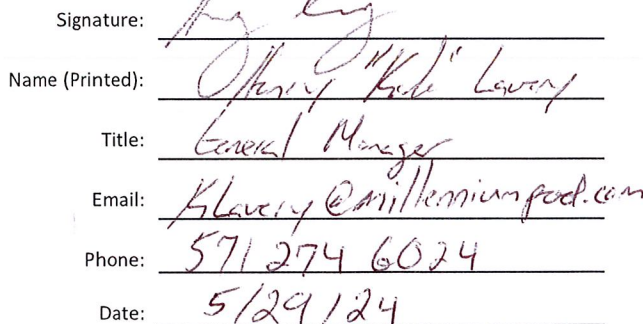 Signature:
Name (Printed): Henry "Kirk" Lavery
Title: General Manager
Email: KLavery@millenniumpool.com
Phone: 571 274 6024
Date: 5/29/24